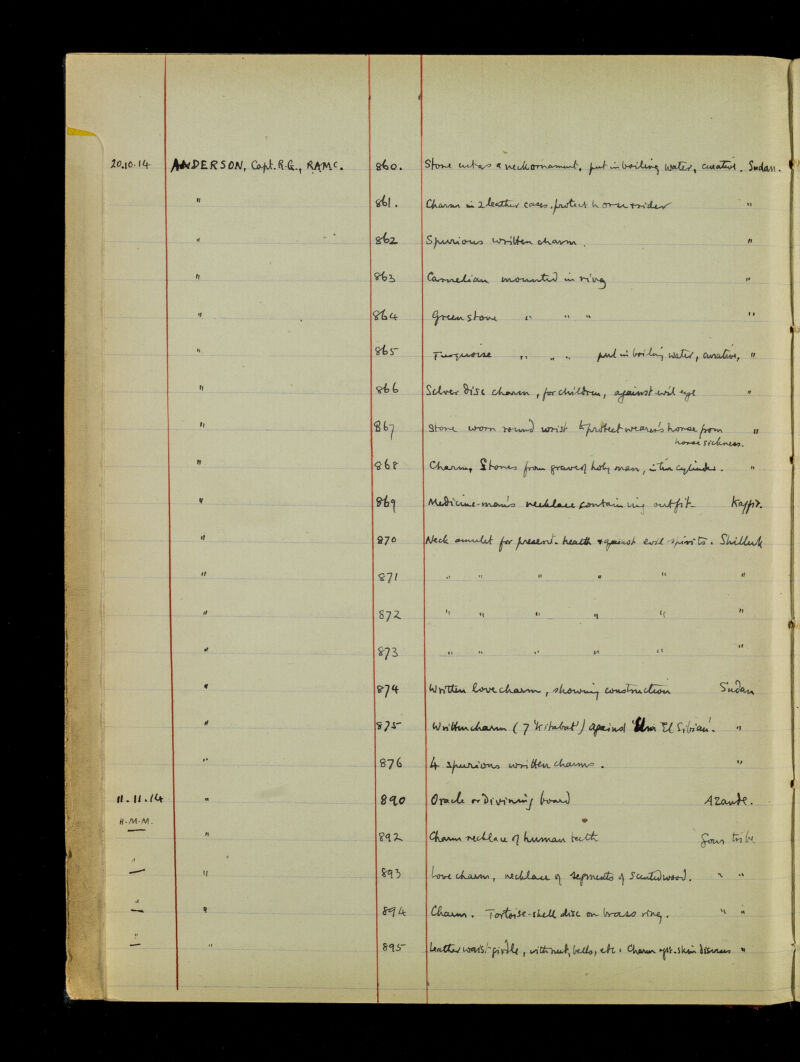 20.10.14 ANDERSON, Capt. R.G., RAMC. 860. Stone cut as a neck ornament, put in boiling water, curative. Sudan.
" 861. Charm in 2 leather cases, protect horse + rider "
" 862 Spurious written charm. "
" 863 Carnelian mounted in ring "
" 864 Green stone " " " "
" 865 Turquoise " " " put in boiling water, curative, "
" 866 Silver disc charm, for children, against evil eye "
" 867 Stone worn round wrist to protect wearer's horse from "
horse sickness.
" 868 Charm, Stones from grave of holy man, in tin cylinder. "
" 869 Medicine-man's necklace containing outfit Kaffir.
" 870 Neck amulet for preserv. health + against evil spirits. Shilluk
" 871 " " " " " "
" 872 " " " " " "
" 873 " " " " " "
" 874 Written love charm, showing construction Sudan
" 875 Written charm (7 'kitabat') against 'El Sibian'. "
" 876 4 spurious written charms. "
11.11.14 " 890 Oracle or Divining board Azande.
H.M.M.
" 892 Charm necklace of human teeth Gour tribe
" " 893 Love charm, necklace of segments of scented wood. " "
" " 894 Charm. Tortoise-shell disc on brass ring. " "
" " 895 Leather waist-girdle, with nut, bells, etc. Charm agst. skin diseases "